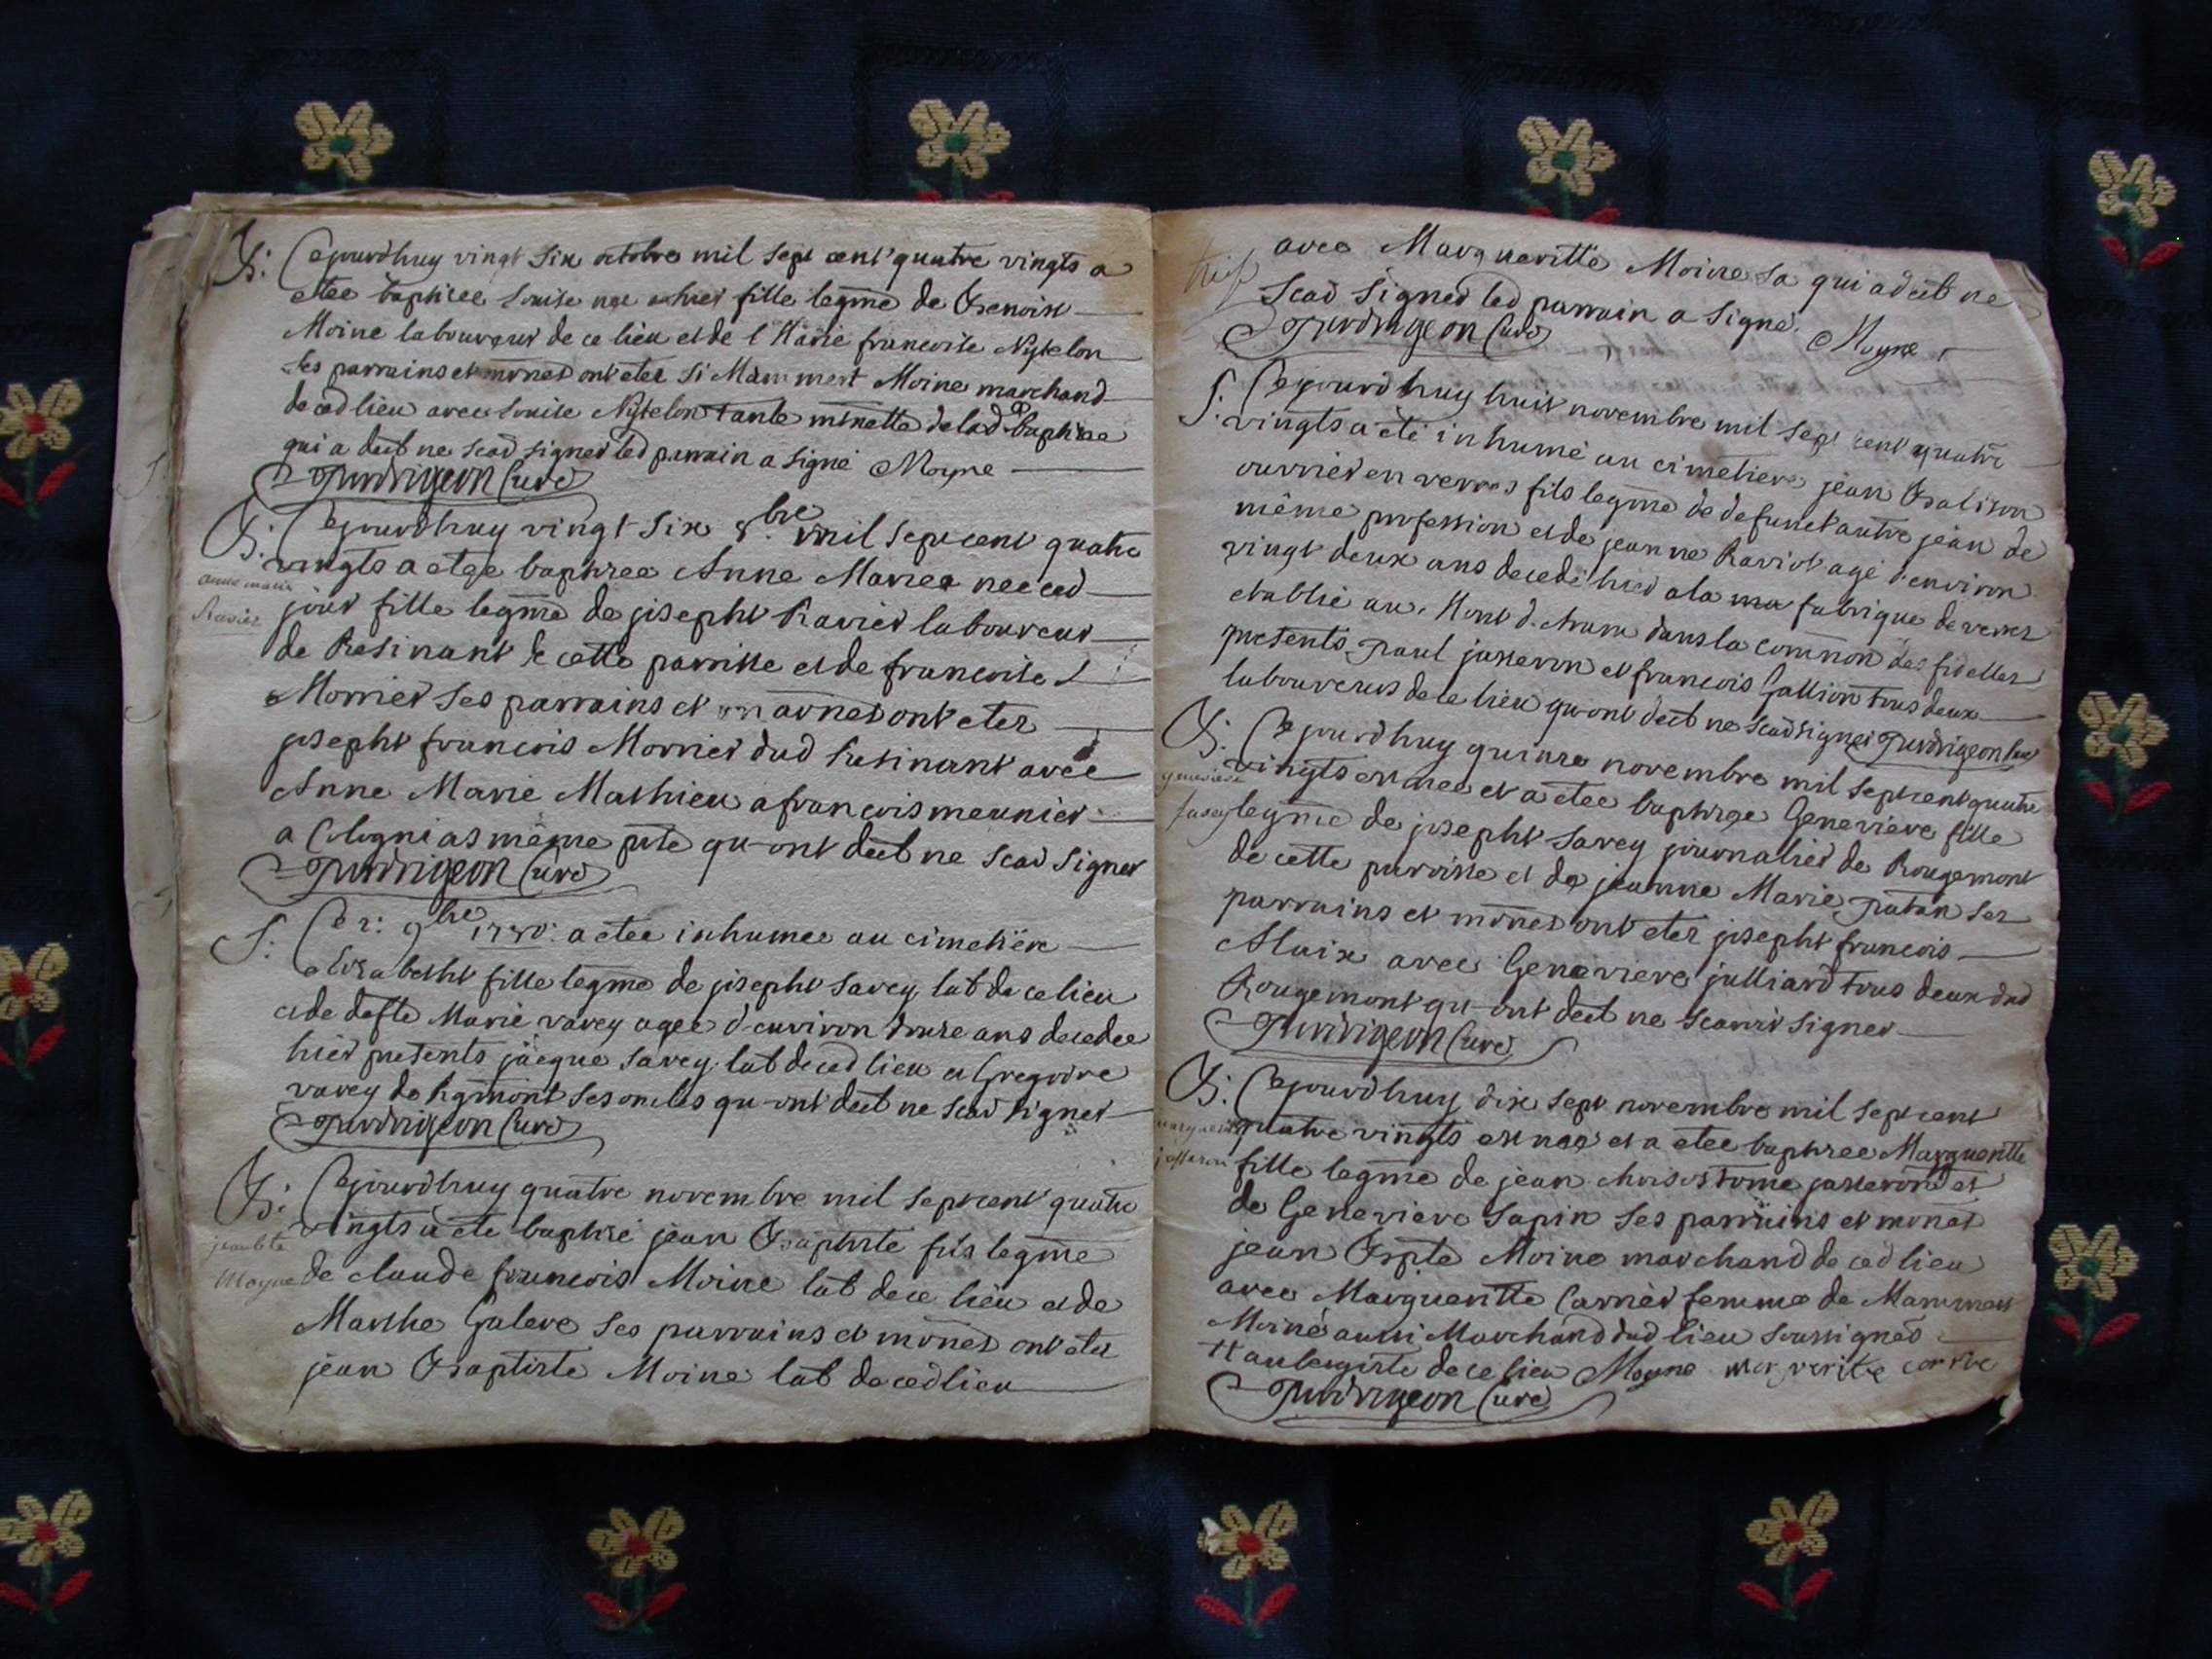 B: Cejourdhuy vingt Six octobre mil sept cent quatre vingts a
etee baptisee Louise nee hier fille legme de Benoist
Moine laboureur de ce lieu et de Marie francoise
Ses parrains et mrnes ont etez Si Mammert Moine marchand
de ced lieu avec Louise tante mrnelle de lad baptisee
qui a dect ne scav signer led parrain a signe Moyne
Curé
B: Cejourdhuy vingt Six 8.bre mil sept cent quatre
vingts a etee baptisee Anne Mariee nee ced
anne marie
jour fille legme de joseph Ravier laboureur
Ravier
de Resinant de cette parrisse et de francoise
Morrier Ses parrains et marnes ont etez
joseph francois Morrier dud Resinant avec
Anne Marie Mathieu a francois meunier
a même pste qu-ont dect ne Scav Signer
Curé
S: Ce 2: 9bre 1780: a etee inhumee au cimetière
elizabeth fille legme de joseph Savey lab de ce lieu
et de defte Marie varey agee d'environ douze ans decedee
hier presents jacque Savey lab de ced lieu et Gregoire
varey de Rgmont Ses oncles qu-ont dect ne Scav signer
Curé
B: Cejourdhuy quatre novembre mil sept cent quatre
vingts a ete baptisé jean Baptiste fils legme
jean bte
Moyne de claude francois Moine lab de ce lieu et de
Marthe Galere Ses parrains et mrnes ont etez
jean Baptiste Moine lab de ced lieu
avec Margueritte Moine Sa qui a dect ne
Scav Signer led parrain a Signé. Moyne
Curé
S: Cejourdhuy huit novembre mil sept cent quatre
vingts a été inhumé au cimetiere jean Balison
ouvrier en verres fils legme de defunct autre jean de
même profession et de jeanne Raviot agé d'environ
vingt deux ans decedé hier a la fabrique de verres
etablie au Mont d. dans la common des fidelles
presents paul jasseron et francois Gallion tous deux
laboureurs de ce lieu qu-ont dect ne Scav signer
B: Cejourdhuy quinze novembre mil sept cent quatre
vingts est nee et a etee baptisee Genevieve fille
genevieve
Savey legme de joseph Savey journalier de Rougemont
de cette parrisse et de jeanne Marie Ses
parrains et mrnes ont etez joseph francois
avec Genevieve julliard tous deux dud
Rougemont qu-ont dect ne Scavoir Signer
Curé
B: Cejourdhuy dix Sept novembre mil sept cent
quatre vingts est nee et a etee baptisee Margueritte
jasseron fille legme de jean jasseron et
de Genevieve Sapin Ses parrains et mrnes
jean Bpte Moine marchand de ced lieu
avec Margueritte Carrier femme de Mammert
Moine aussi Marchand dud lieu Soussignés
aubergiste de ce lieu Moyne
Curé